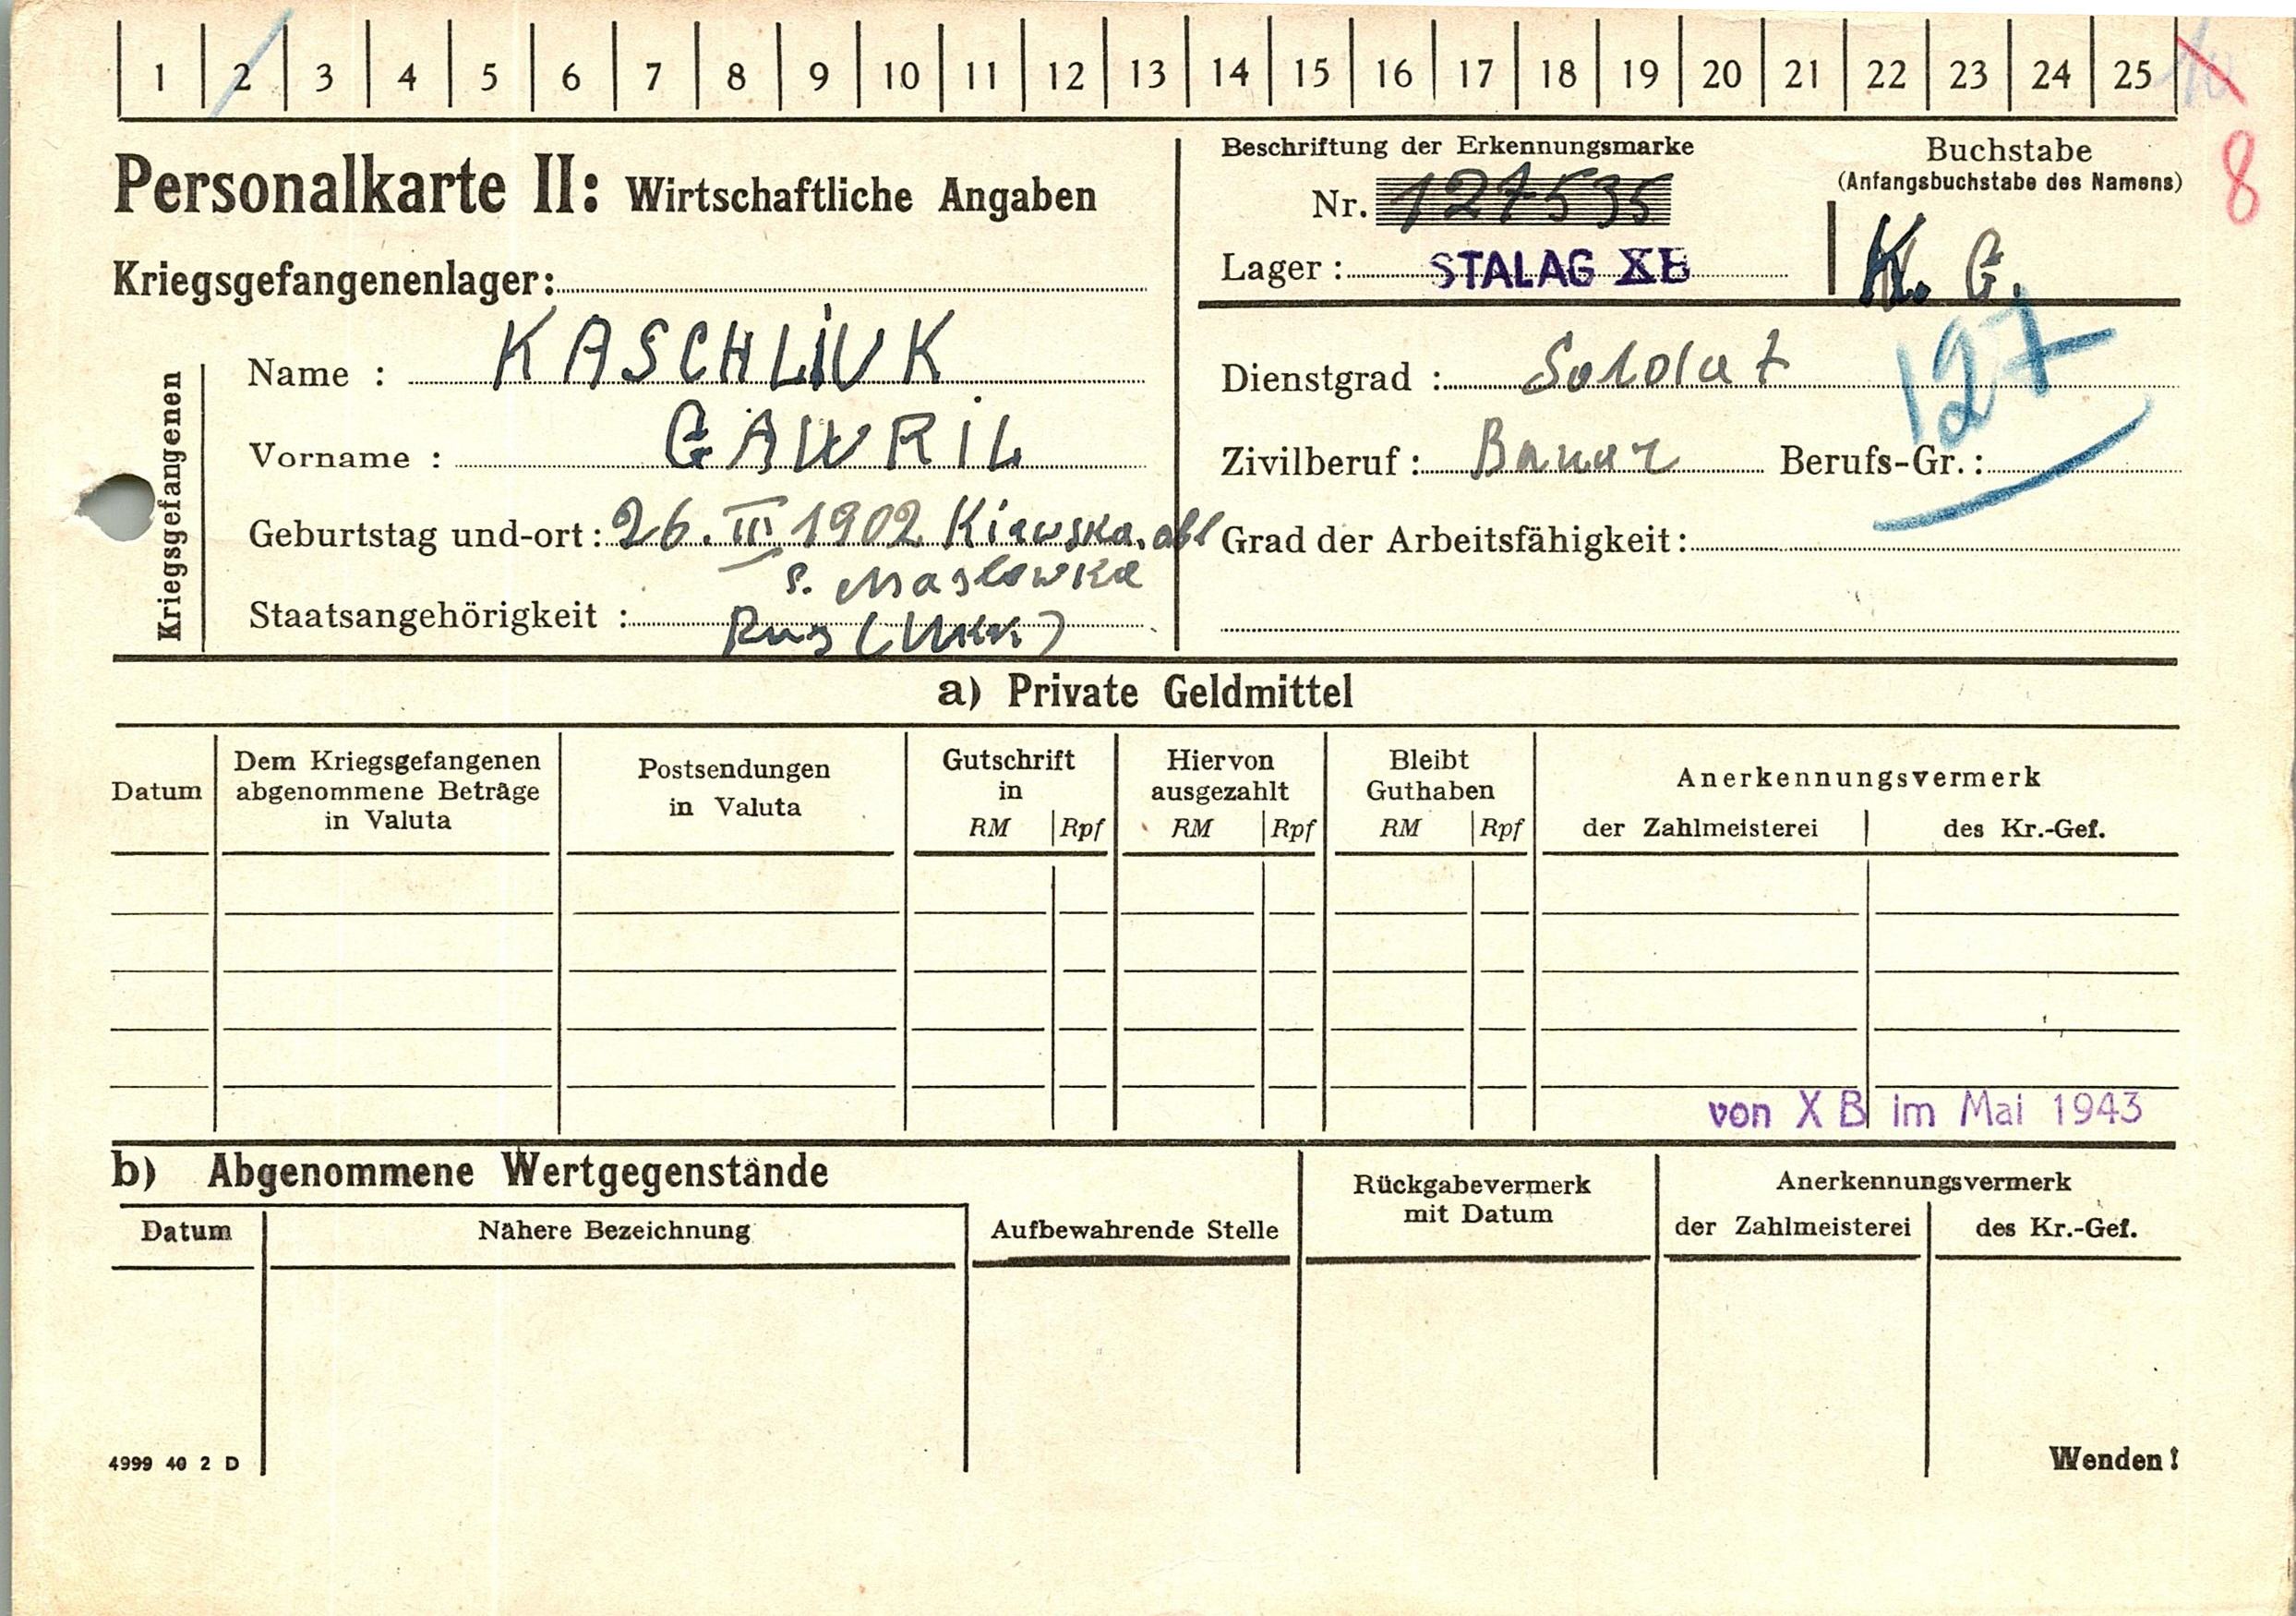 1 2 3 4 5 6 7 8 9 10 11 12 13 14 15 16 17 18 19 20 21 22 23 24 25
8
Personalkarte II: Wirtschaftliche Angaben
Kriegsgefangenenlager:
Kriegsgefangenen
Name : KASCHLIUK
Vorname : GAWRIL
Geburtstag und-ort: 26. III 1902 Kiewska. obl
s. Maslowka
Staatsangehörigkeit : Rus (Ukr.)
Beschriftung der Erkennungsmarke
Nr. 127535
Lager: STALAG XB
Buchstabe
(Anfangsbuchstabe des Namens)
K. G.
127
Dienstgrad : Soldat
Zivilberuf: Bauer Berufs-Gr.:
Grad der Arbeitsfähigkeit:
a) Private Geldmittel
Datum
Dem Kriegsgefangenen
abgenommene Beträge
in Valuta
Postsendungen
in Valuta
Gutschrift
in
RM Rpf
Hiervon
ausgezahlt
RM Rpf
Bleibt
Guthaben
RM Rpf
Anerkennungsvermerk
der Zahlmeisterei des Kr.-Gef.
von X B im Mai 1943
b) Abgenommene Wertgegenstände
Datum
Nähere Bezeichnung
Aufbewahrende Stelle
Rückgabevermerk
mit Datum
Anerkennungsvermerk
der Zahlmeisterei des Kr.-Gef.
4999 40 2 D
Wenden!